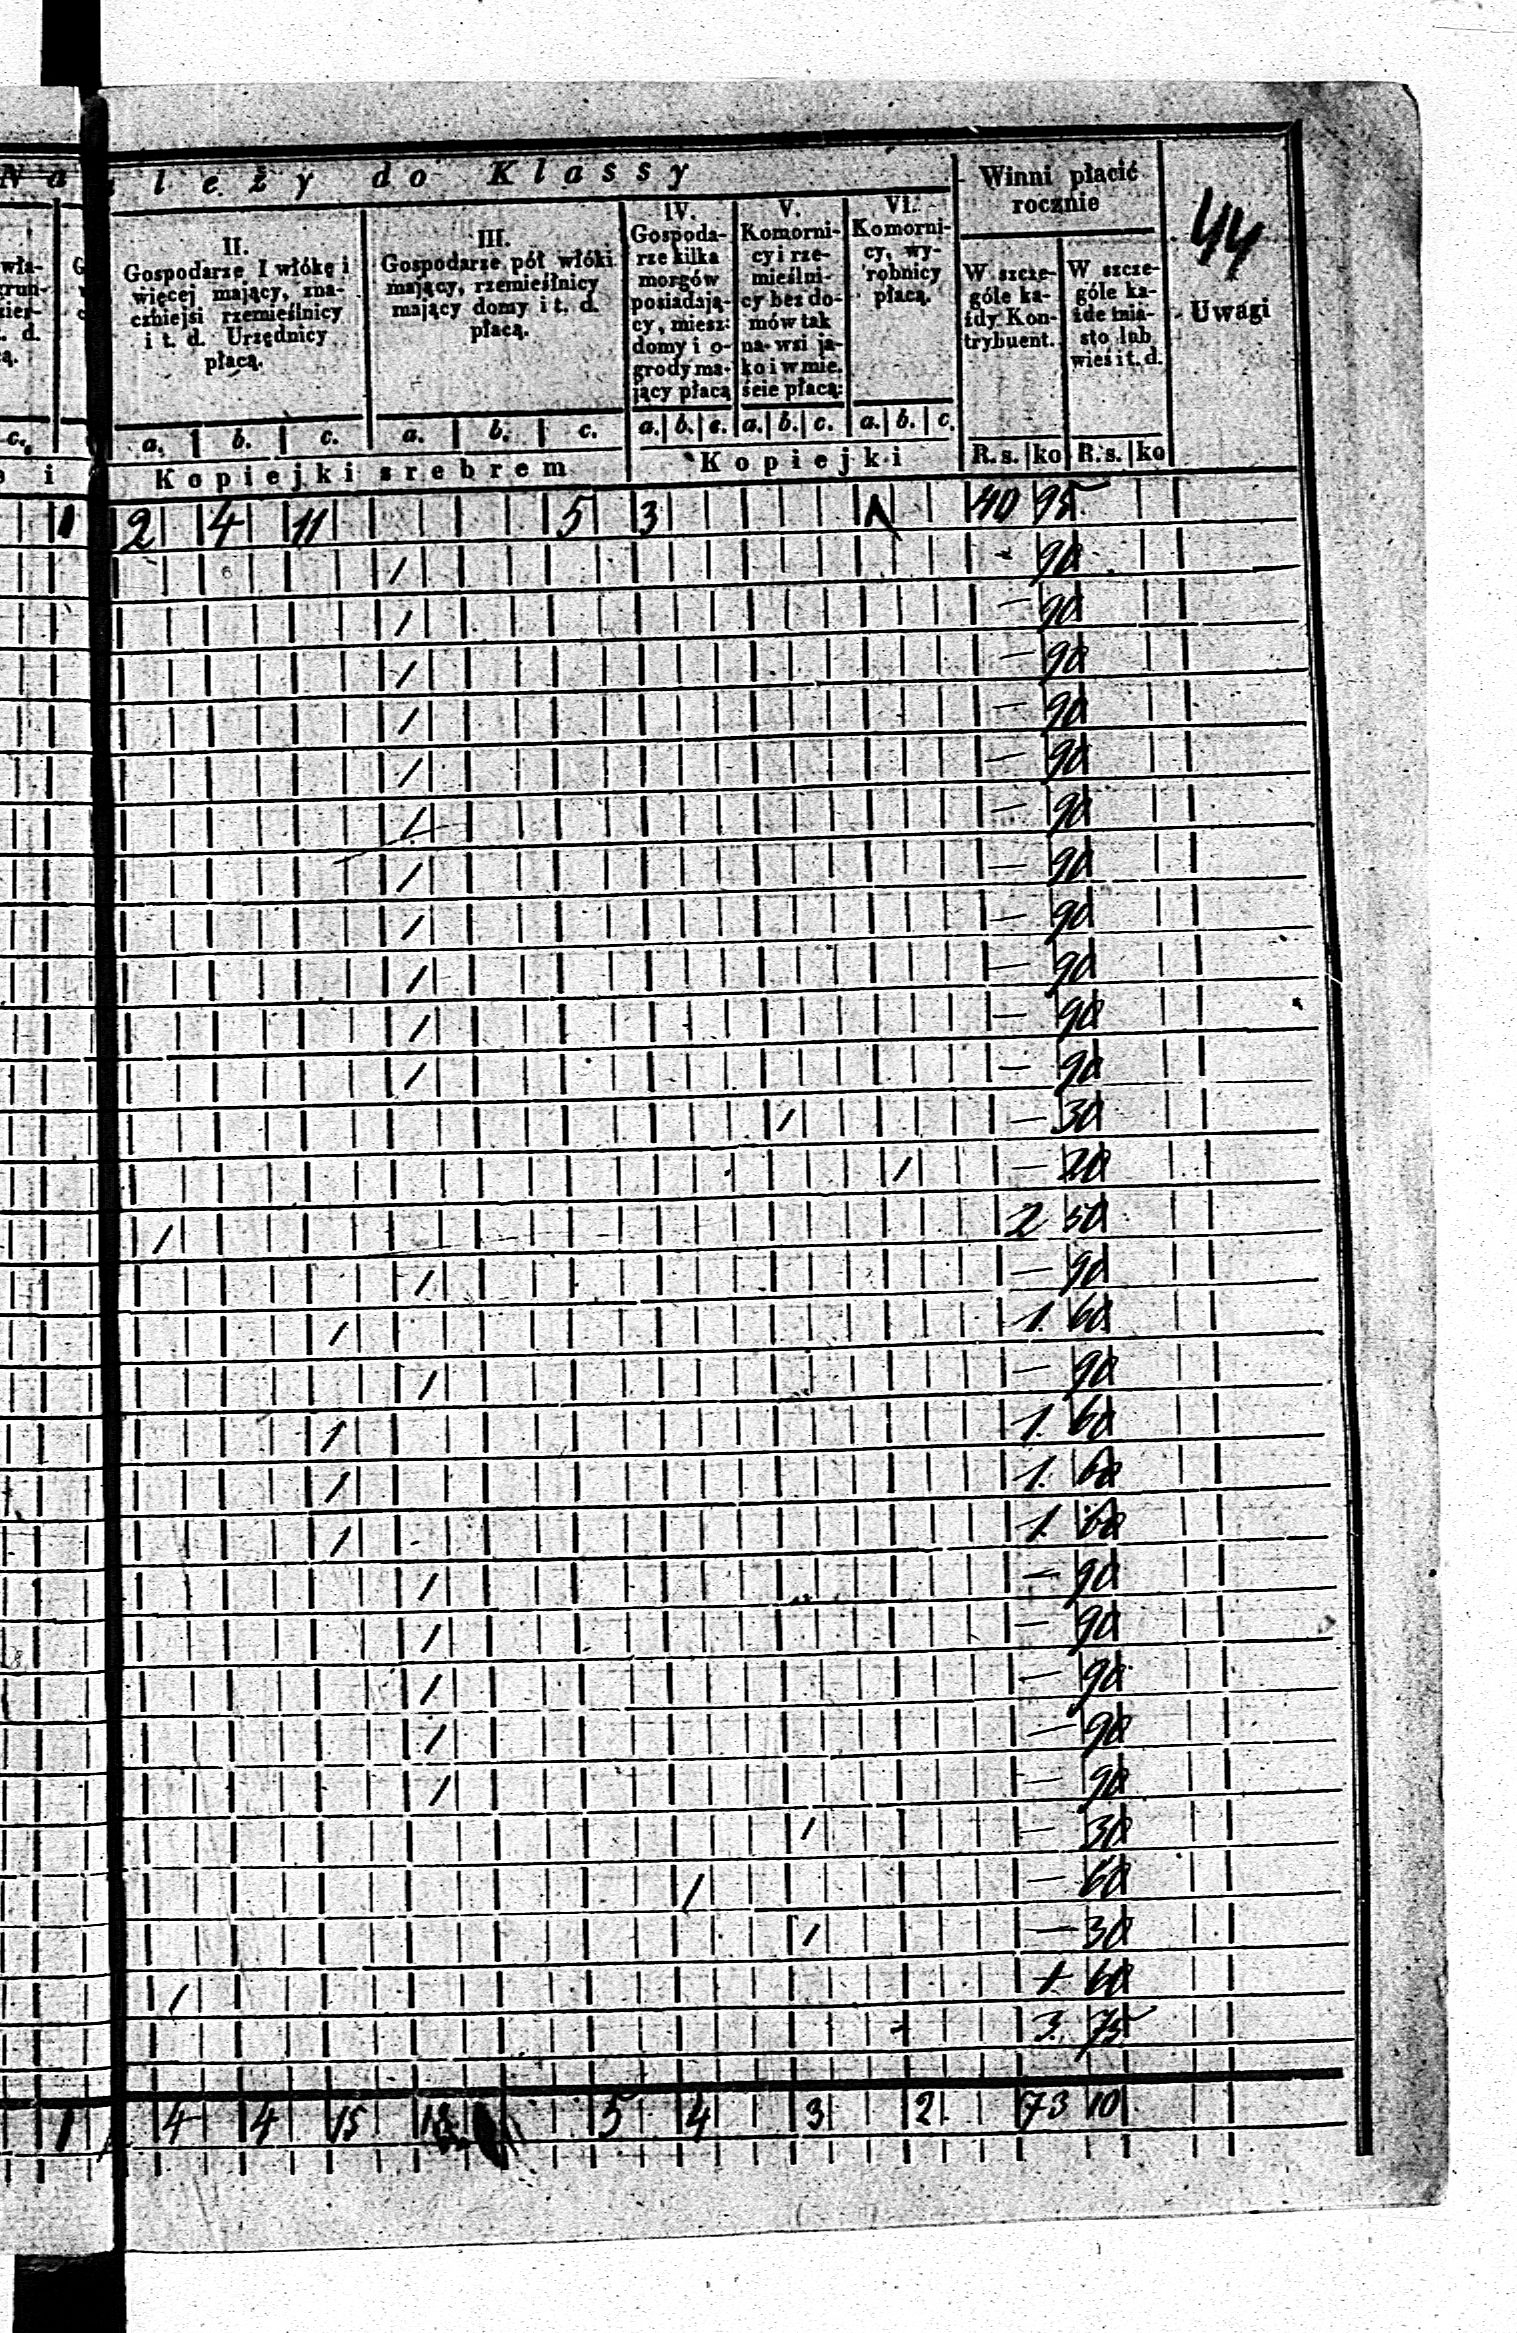 Należy do Klassy
Winni płacić
rocznie
44
II.
Gospodarze I włókę i
więcej mający, zna-
czniejsi rzemieślnicy
i t. d. Urzędnicy
płacą.
III.
Gospodarze pół włóki
mający, rzemieślnicy
mający domy i t. d.
płacą.
IV.
Gospoda-
rze kilka
morgów
posiadają-
cy, miesz:
domy i o-
grody ma-
jący płacą
V.
Komorni-
cy i rze-
mieślni-
cy bez do-
mów tak
na wsi ja-
ko i w mie.
ście płacą:
VI.
Komorni-
cy, wy-
robnicy
płacą.
W szcze-
góle ka-
żdy Kon-
trybuent.
W szcze-
góle ka-
żde mia-
sto lub
wieś i t. d.
Uwagi
c. a. b. c. a. b. c. a. b. c. a. b. c. a. b. c.
Kopiejki srebrem Kopiejki R. s. ko R. s. ko
1 2 4 11 5 3 1 40 95
1 - 90
1 — 90
1 — 90
1 — 90
1 — 90
1 — 90
1 — 90
1 — 90
1 — 90
1 — 90
1 — 90
1 — 30
1 — 20
1 2 50
1 — 90
1 1. 60
1 — 90
1 1. 60
1 1. 60
1 1. 60
1 — 90
1 — 90
1 — 90
1 — 90
1 — 90
1 — 30
1 — 60
1 — 30
1 1 60
3. 75
1 4 4 15 5 4 3 2 73 10